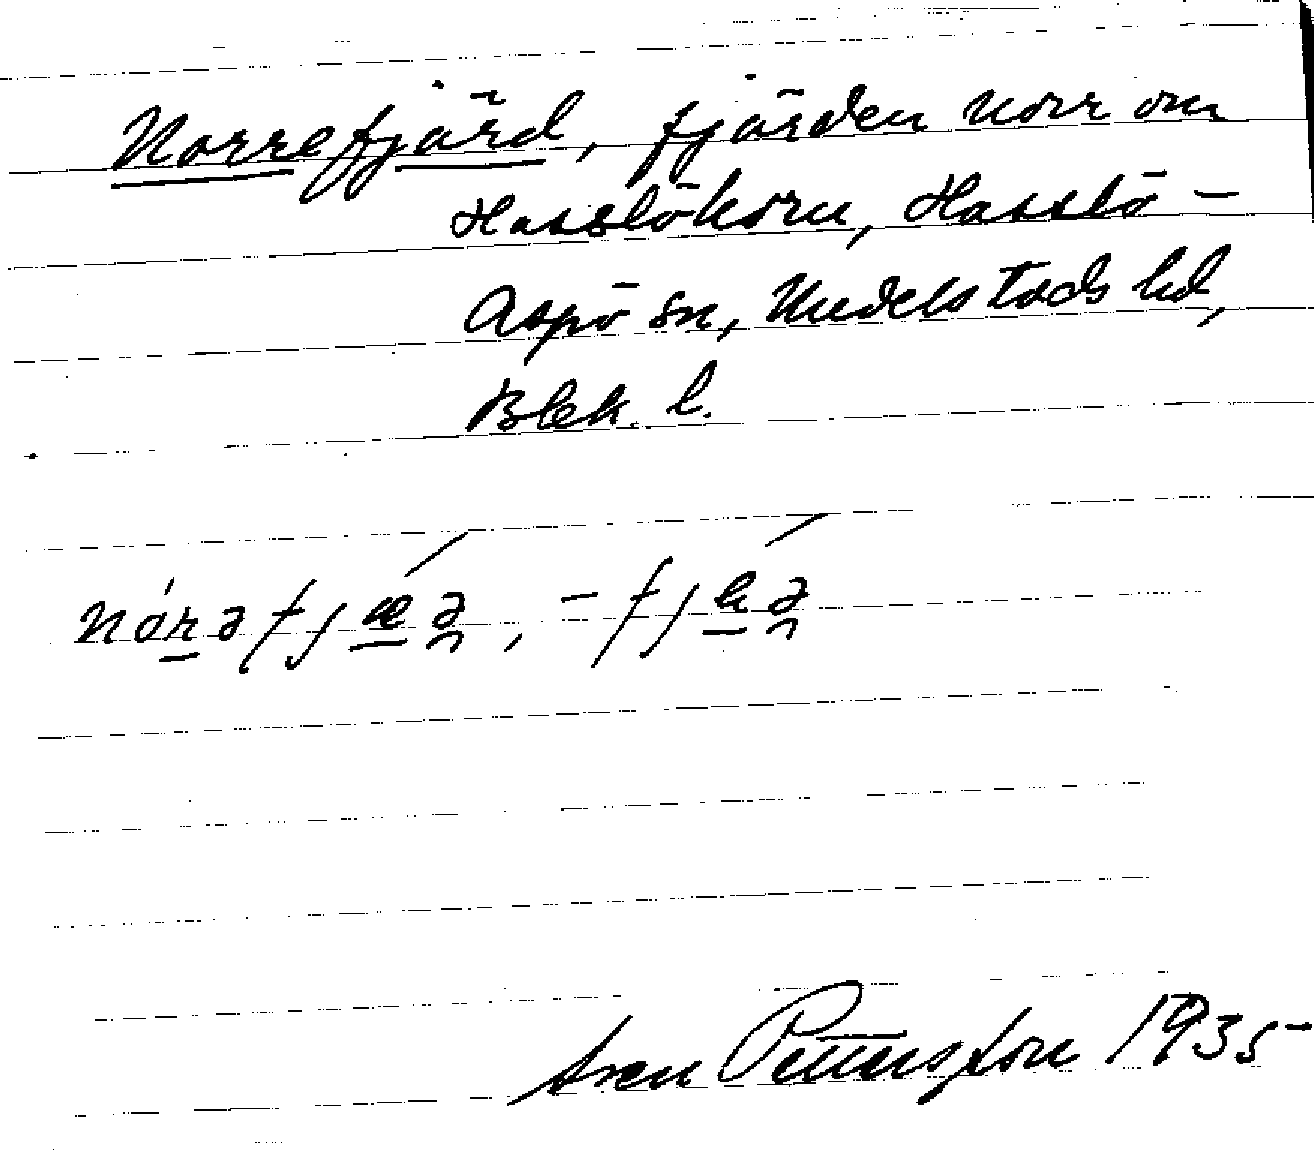 Norrefjärd, fjärden norr om
Hasslökorn, Hasslö-
Aspö sn, Medelstads hd,
Blek. l.
nórəfjæə̯, -fjaə̯
Sven Pettersson 1935